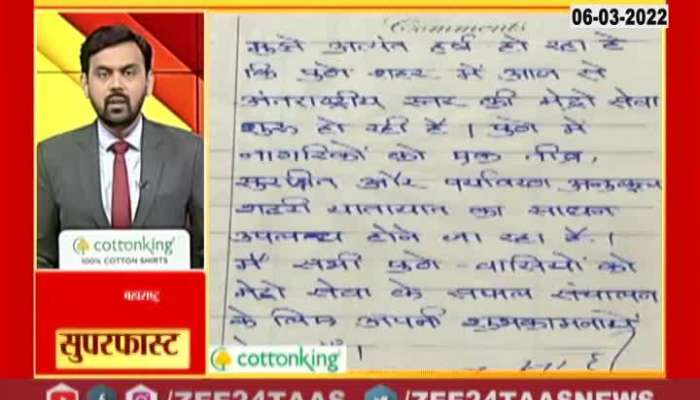 06-03-2022
Comments
मुझे अत्यंत हर्ष हो रहा है
कि पुणे शहर में आज से
अंतरराष्ट्रीय स्तर की मेट्रो सेवा
शुरू हो रही है । पुणे में
नागरिकों को एक तीव्र,
सुरक्षित और पर्यावरण अनुकूल
शहरी यातायात का साधन
उपलब्ध होने जा रहा है ।
मैं सभी पुणे - वासियों को
मेट्रो सेवा के सफल संचालन
के लिए अपनी शुभकामनायें
।
cottonking
100% COTTON SHIRTS
महाराष्ट्र
सुपरफास्ट
cottonking
/ZEE24TAAS
/ZEE24TAASNEWS